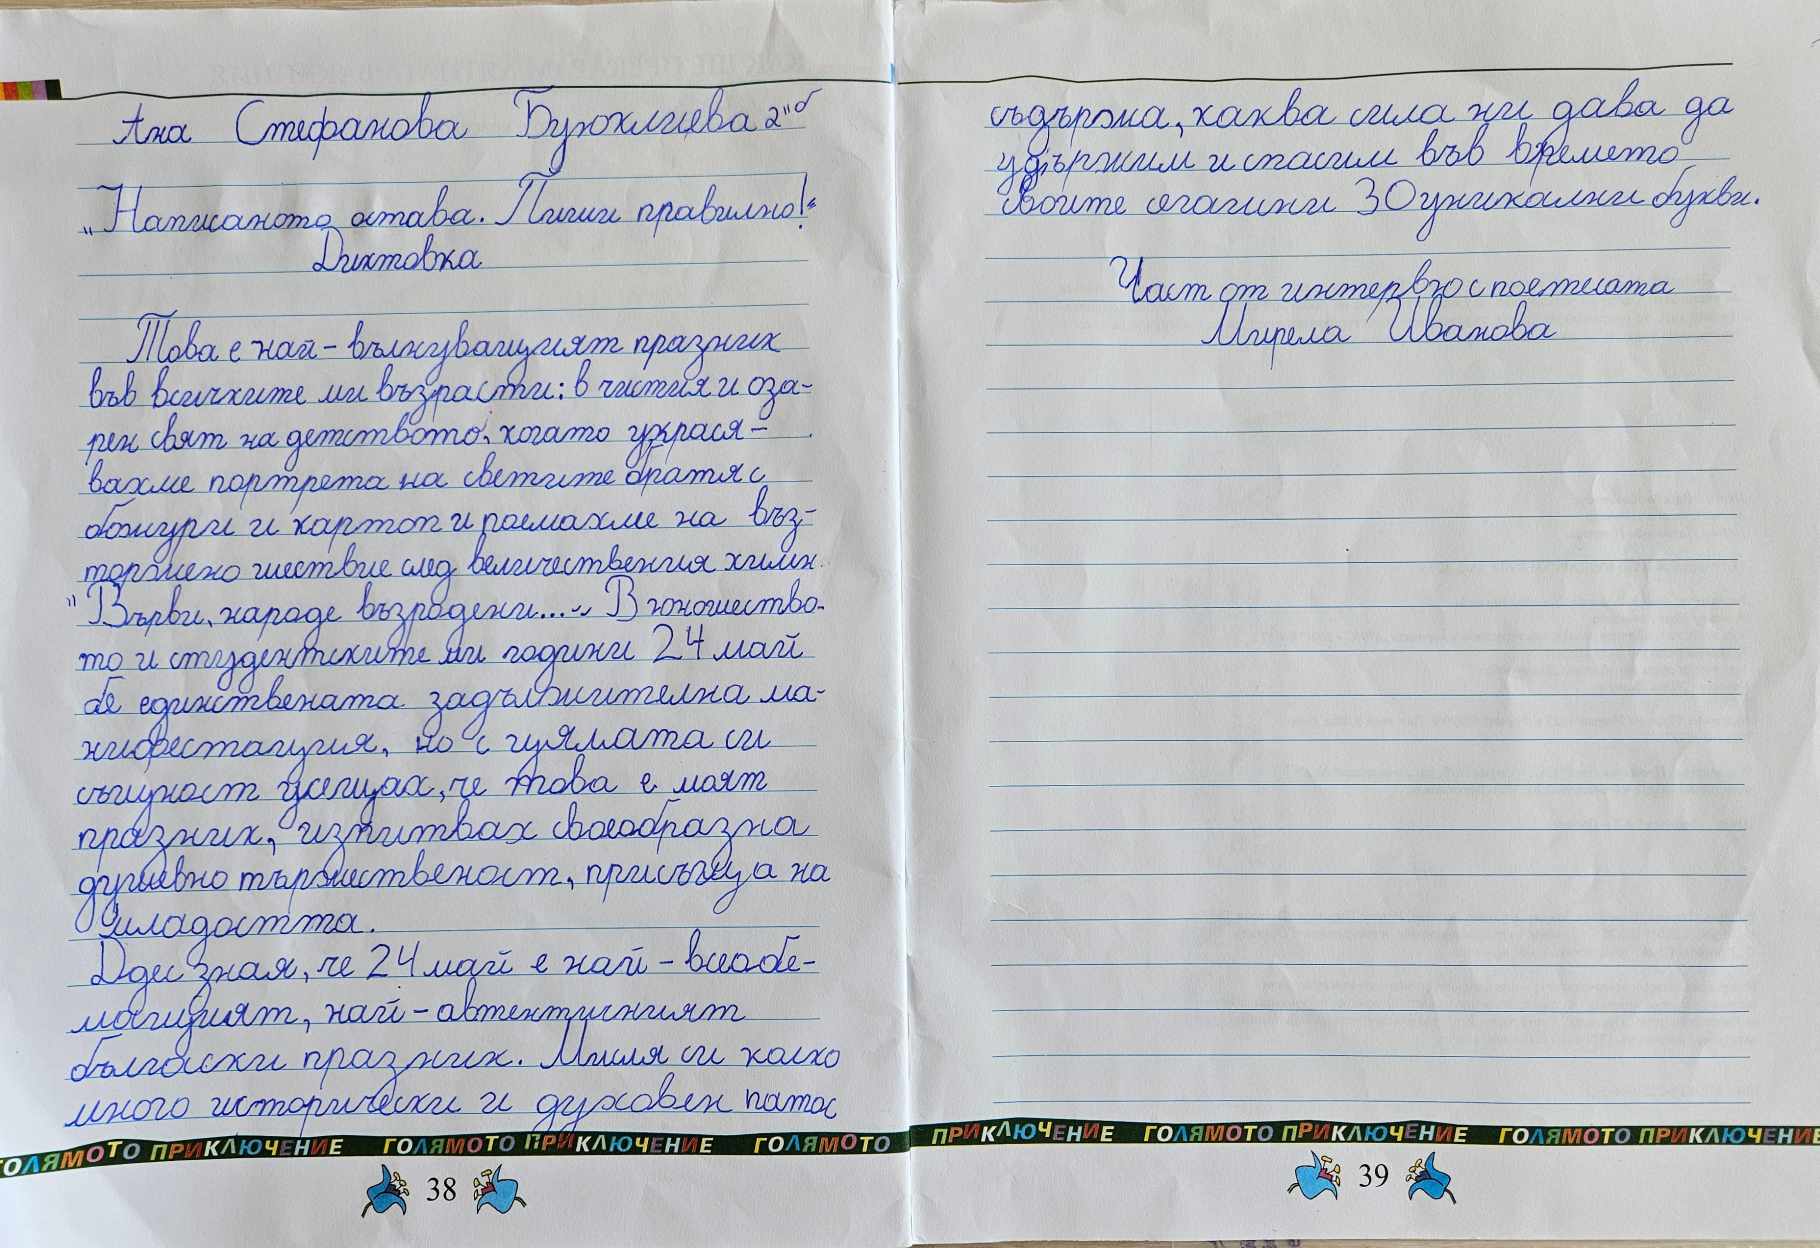 Ана Стефанова Буюклиева 2"б
„Написаното остава. Пиши правилно!“
Диктовка
Това е най-вълнуващият празник
във всичките ми възрасти: в чистия и оза-
рен свят на детството, когато украся-
вахме портрета на светите братя с
божури и картоп и поемахме на въз-
торжено шествие след величествения химн
"Върви, народе възродени..." В юношество-
то и студентските ми години 24 май
бе единствената задължителна ма-
нифестация, но с цялата си
същност усещах, че това е моят
празник, изпитвах своеобразна
душевно тържественост, присъща на
младостта.
Днес зная, че 24 май е най-всеобе-
мащият, най-автентичният
български празник. Мисля си колко
много исторически и духовен патос
съдържа, каква сила ни дава да
удържим и спасим във времето
своите сегашни 30 уникални букви.
Част от интервю с поетесата
Мирела Иванова
ГОЛЯМОТО ПРИКЛЮЧЕНИЕ ГОЛЯМОТО ПРИКЛЮЧЕНИЕ ГОЛЯМОТО ПРИКЛЮЧЕНИЕ ГОЛЯМОТО ПРИКЛЮЧЕНИЕ ГОЛЯМОТО ПРИКЛЮЧЕНИЕ
38
39